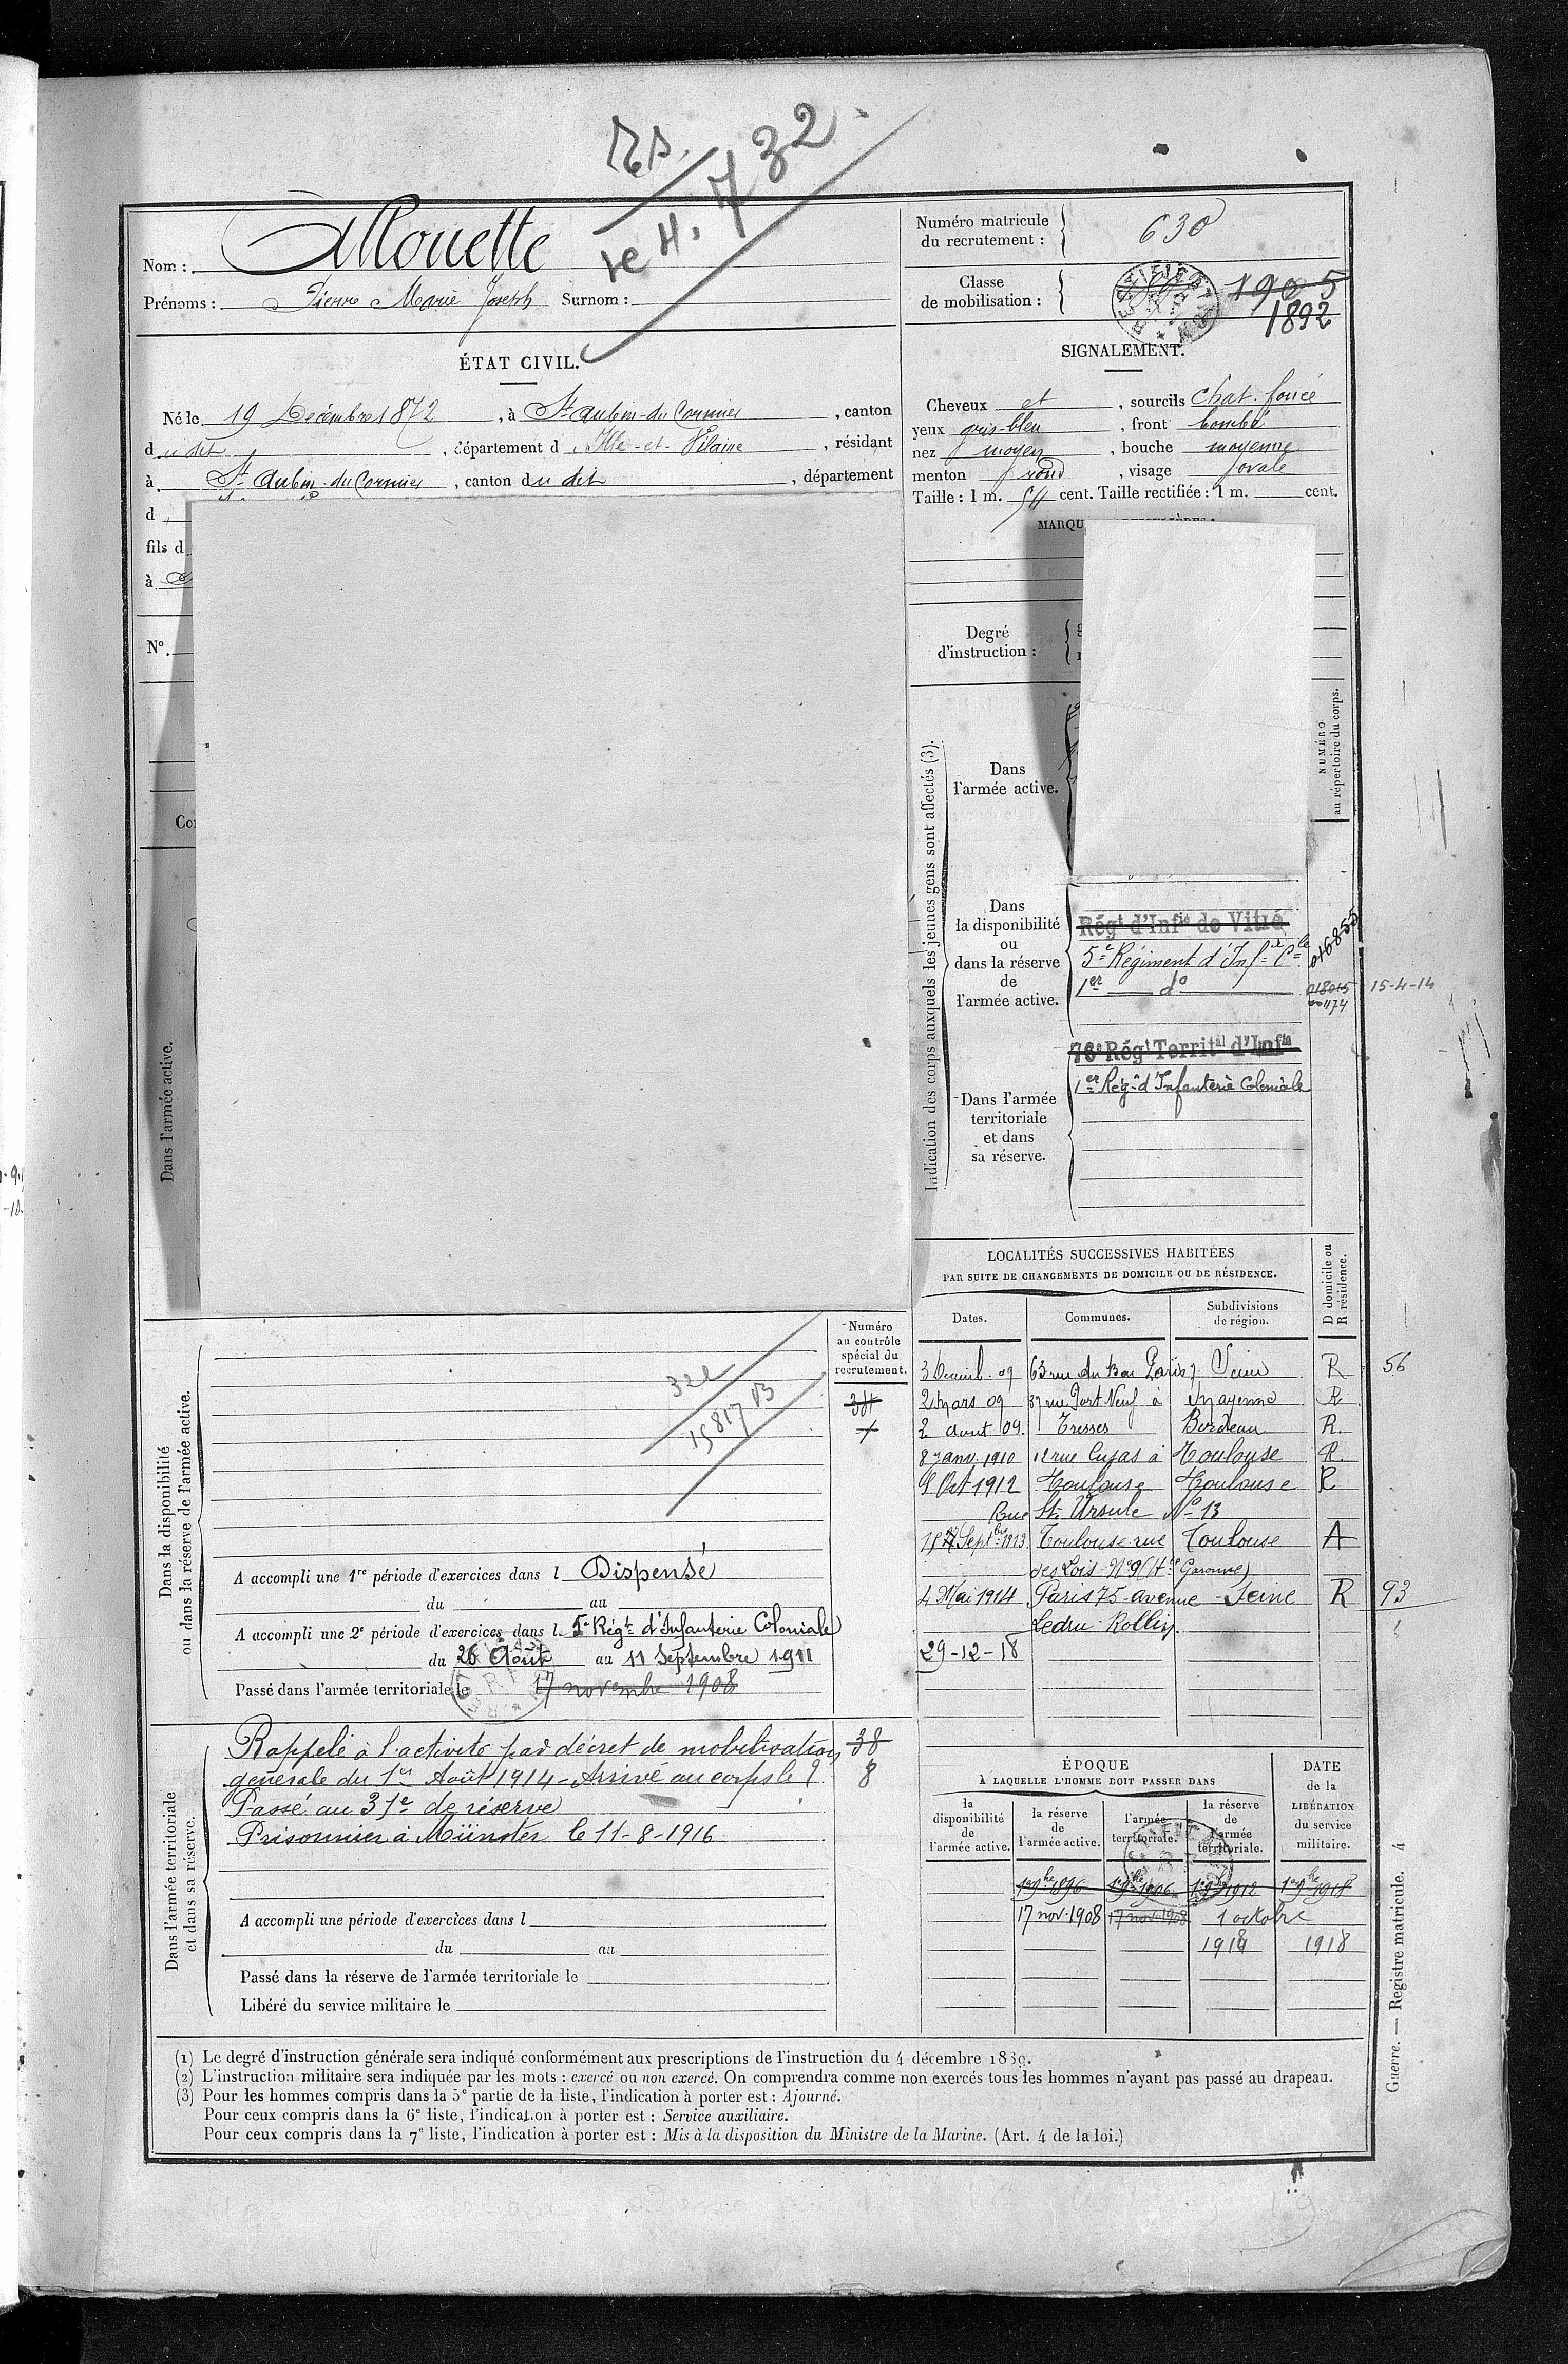 Rs.
732
Nom : Mouette
Prénoms : Pierre Marie Joseph Surnom :
Numéro matricule du recrutement : 630
Classe de mobilisation : 1905
1892
ÉTAT CIVIL.
Né le 19 Décembre 1872, à St Aubin-du Cormier, canton
dudit, département d'Ille-et-Vilaine, résidant
à St Aubin-du Cormier, canton du dit, département
d
fils d
à
N°.
Dans l'armée active.
SIGNALEMENT.
Cheveux et, sourcils Chat. foncé
yeux gris-bleu, front bombé
nez moyen, bouche moyenne
menton rond, visage ovale
Taille : 1 m. 54 cent. Taille rectifiée : 1 m. cent.
MARQU
Degré d'instruction :
Indication des corps auxquels les jeunes gens sont affectés (3).
NUMÉRO au répertoire du corps.
Dans l'armée active.
Dans la disponibilité ou dans la réserve de l'armée active.
Régt d'Infie de Vitré
5e Régiment d'Infie Cle
1er do
016855
018015 15-4-14
001174
Dans l'armée territoriale et dans sa réserve.
78e Régt Territal d'Infie
1er Régt d'Infanterie Coloniale
LOCALITÉS SUCCESSIVES HABITÉES
PAR SUITE DE CHANGEMENTS DE DOMICILE OU DE RÉSIDENCE.
Dates. Communes. Subdivisions de région. D domicile ou R résidence.
63 rue du Bac Paris 7 Seine R 56
2 mars 09 37 rue Port Neuf à Mayenne R
2 aout 09. Tresses Bordeau R.
8 Janv. 1910 12 rue Cujas à Toulouse R.
9 Oct 1912 Toulouse Toulouse R
Rue Ste Ursule No 13
Septbre 1913 Toulouse rue Toulouse A
des Lois No 9 (Hte Garonne)
4 Mai 1914 Paris 75 avenue Seine R 93
Ledru-Rollin
29-12-18
Dans la disponibilité ou dans la réserve de l'armée active.
Numéro au contrôle spécial du recrutement.
322
15817 B
A accompli une 1re période d'exercices dans l Dispensé
du au
A accompli une 2e période d'exercices dans l 5e Régt d'Infanterie Coloniale
du 26 Août au 11 Septembre 1911
Passé dans l'armée territoriale le 17 novembre 1908
Dans l'armée territoriale et dans sa réserve.
Rappelé à l'activité par décret de mobilisation 38
générale du 1er Août 1914 - Arrivé au corps le 8
Passé au 37e de réserve
Prisonnier à Münster le 11-8-1916
A accompli une période d'exercices dans l
du au
Passé dans la réserve de l'armée territoriale le
Libéré du service militaire le
ÉPOQUE
À LAQUELLE L'HOMME DOIT PASSER DANS
la disponibilité de l'armée active. la réserve de l'armée active. l'armée territoriale. la réserve de l'armée territoriale. DATE de la LIBÉRATION du service militaire.
1er 9bre 1896 1er 9bre 1906 1er 9bre 1912 1er 9bre 1918
17 nov. 1908 17 nov. 1908 1 octobre
1914 1918
(1) Le degré d'instruction générale sera indiqué conformément aux prescriptions de l'instruction du 4 décembre 1889.
(2) L'instruction militaire sera indiquée par les mots : exercé ou non exercé. On comprendra comme non exercés tous les hommes n'ayant pas passé au drapeau.
(3) Pour les hommes compris dans la 5e partie de la liste, l'indication à porter est : Ajourné.
Pour ceux compris dans la 6e liste, l'indication à porter est : Service auxiliaire.
Pour ceux compris dans la 7e liste, l'indication à porter est : Mis à la disposition du Ministre de la Marine. (Art. 4 de la loi.)
Guerre. — Registre matricule. 4